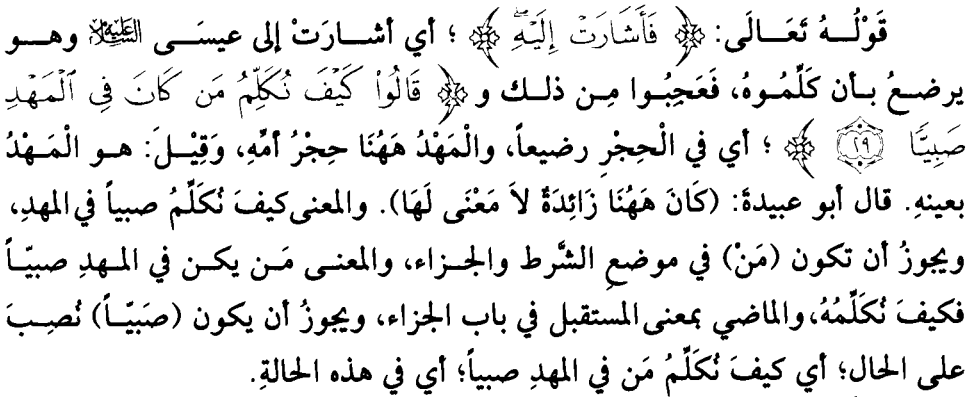 قَوْلُـهُ تَعَـالَى: ﴿ فَأَشَارَتْ إِلَيْهِ ﴾ ؛ أي أشـارَتْ إلى عيسَـى عليه السلام وهـو
يرضـعُ بـأن كَلِّمُـوهُ، فَعَجِبُـوا مِـن ذلـك و﴿ قَالُوا۟ كَيْفَ نُكَلِّمُ مَن كَانَ فِى ٱلْمَهْدِ
صَبِيًّا ﴿٢٩﴾ ﴾ ؛ أي في الْحِجْرِ رضيعاً، والْمَهْدُ هَهُنَا حِجْرُ أمِّهِ، وَقِيْـلَ: هـو الْمَـهْدُ
بعينهِ. قال أبو عبيدةَ: (كَانَ هَهُنَا زَائِدَةٌ لاَ مَعْنَى لَهَا). والمعنى كيفَ نُكَلِّمُ صبياً في المهدِ،
ويجوزُ أن تكون (مَنْ) في موضعِ الشَّرط والجـزاء، والمعنـى مَـن يكـن في المـهدِ صبيّـاً
فكيفَ نُكَلِّمُهُ، والماضي بمعنى المستقبل في باب الجزاء، ويجوزُ أن يكون (صَبَيّـاً) نُصِـبَ
على الحال؛ أي كيفَ نُكَلِّمُ مَن في المهدِ صبياً؛ أي في هذه الحالةِ.